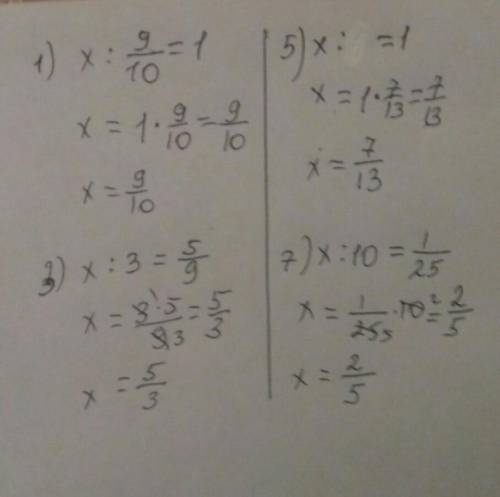 1) x : 9/10 = 1
x = 1 · 9/10 = 9/10
x = 9/10
3) x : 3 = 5/9
x = 3 · 5/9 3 = 5/3
x = 5/3
5) x : = 1
x = 1 · 7/13 = 7/13
x = 7/13
7) x : 10 = 1/25
x = 1/25 5 · 10 2 = 2/5
x = 2/5